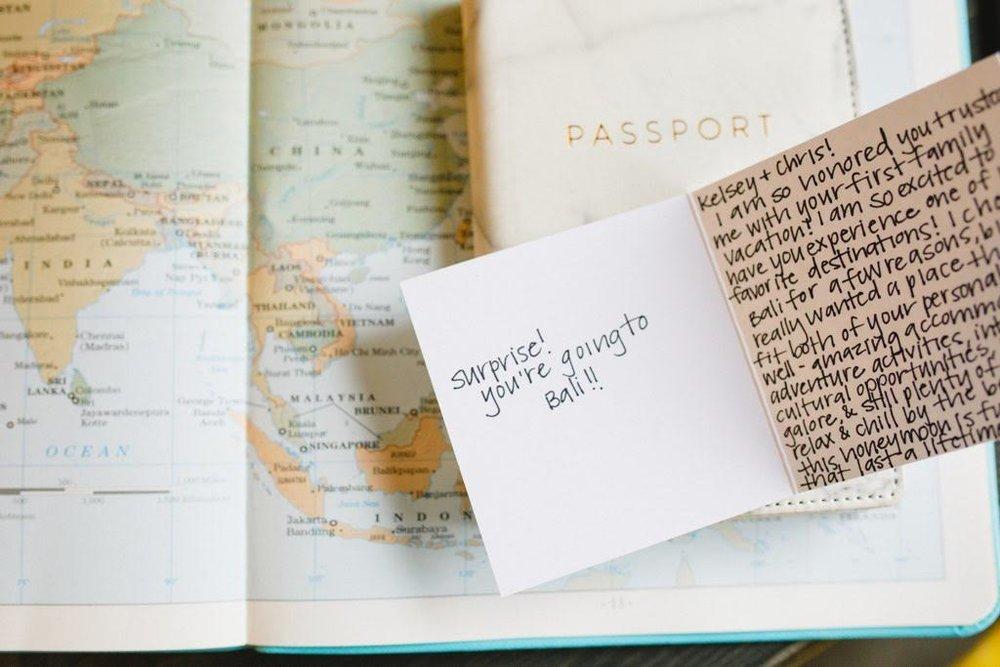 PASSPORT
Kelsey + Chris!
I am so honored you
me with your first family
vacation! I am so excited to
have you experience one of
favorite destinations! I
Bali for a few reasons,
really wanted a place
fit both of your
well - amazing
adventure activities,
cultural opportunities
galore, & still plenty of
relax & chill by the
this honeymoon is
that last a
Surprise!
you're going to
Bali!!
MONGOLIA
CHINA
Wuhan
Delhi
NEPAL
BHUTAN
BANGLADESH
Kolkata
(Calcutta)
MYANMAR
(BURMA)
Ahmadabad
INDIA
Hyderabad
Bay of Bengal
Chennai
(Madras)
Madurai
SRI
LANKA
Colombo
Jayawardenepura
Kotte
Male
OCEAN
LAOS
THAILAND
Da Nang
Bangkok
VIETNAM
CAMBODIA
Phnom
Ho Chi Minh City
Surat Thani
George Town
Banda
Aceh
MALAYSIA
BRUNEI
Kuala
Lumpur
SINGAPORE
Padang
SUMATRA
Palembang
Balikpapan
Java Sea
Jakarta
Bandung
INDON
JAVA
Surabaya